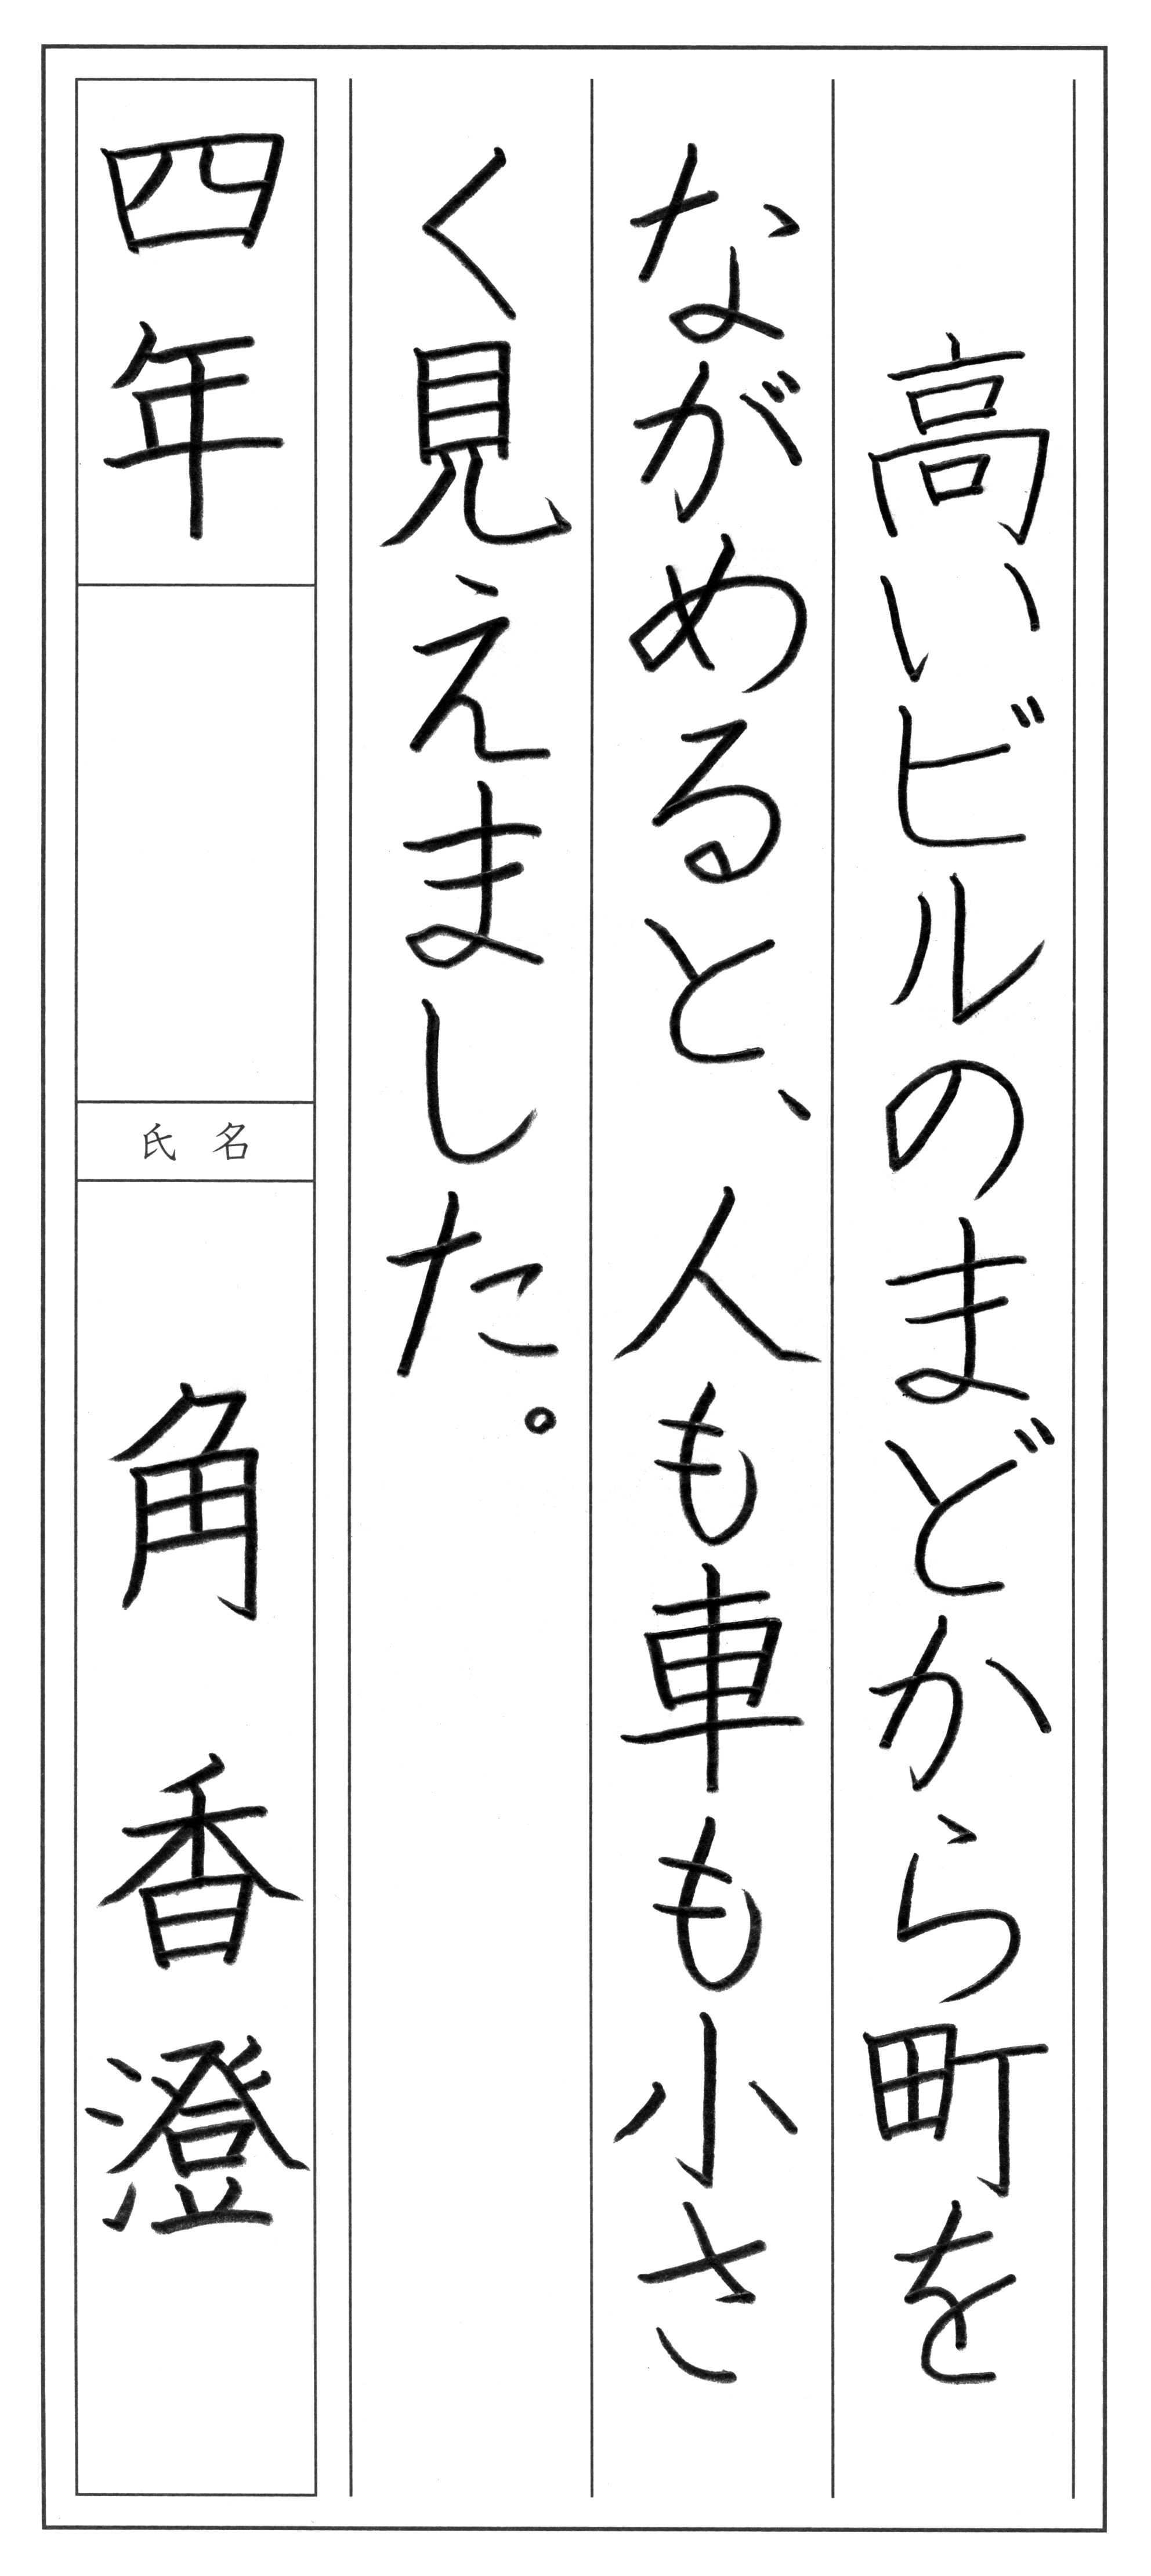 高いビルのまどから町を
ながめると、人も車も小さ
く見えました。
四年
氏名
角 香澄